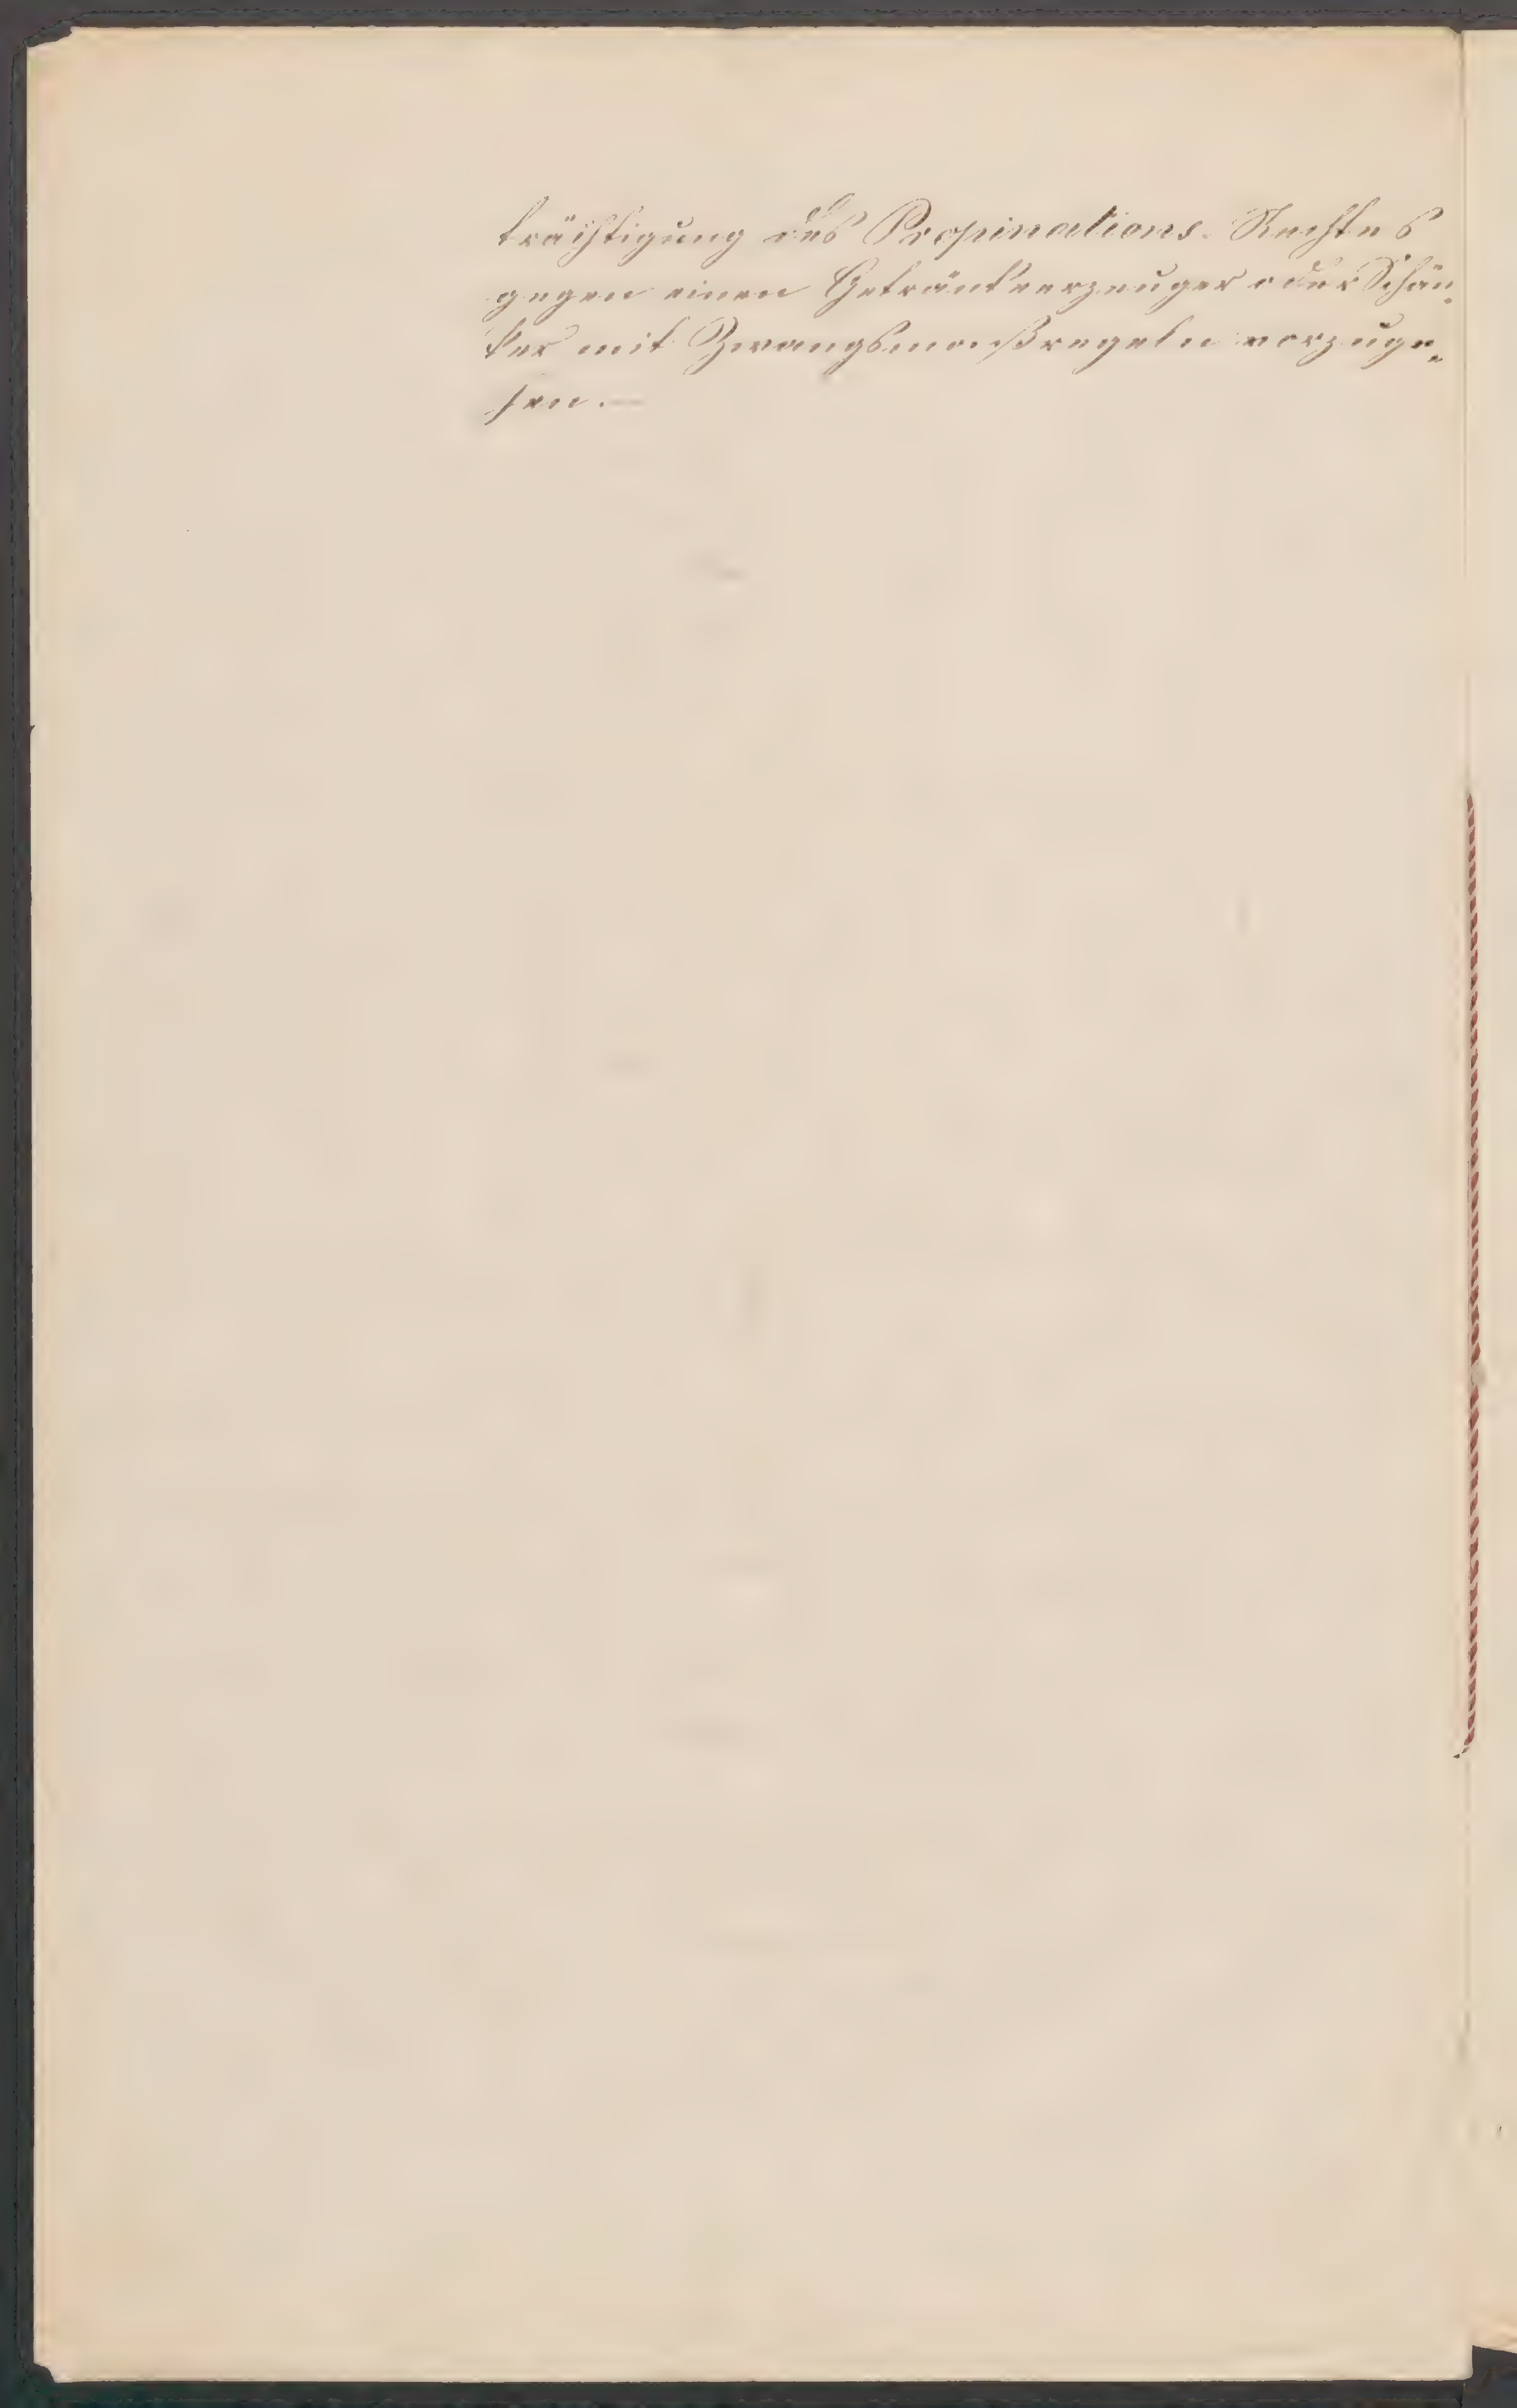 trächtigung des Propinations-Rechtes
gegen einen Getränkeerzeuger oder Schän-
ker mit Zwangsmaßregeln vorzuge-
hen.—